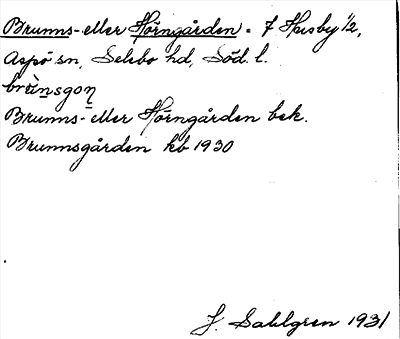 Brunns- eller Hörngården = f Husby 1/2,
Aspö sn, Selebo hd, Söd. l.
brùnsgoṇ
Brunns- eller Hörngården bek.
Brunnsgården kb 1930
J. Sahlgren 1931